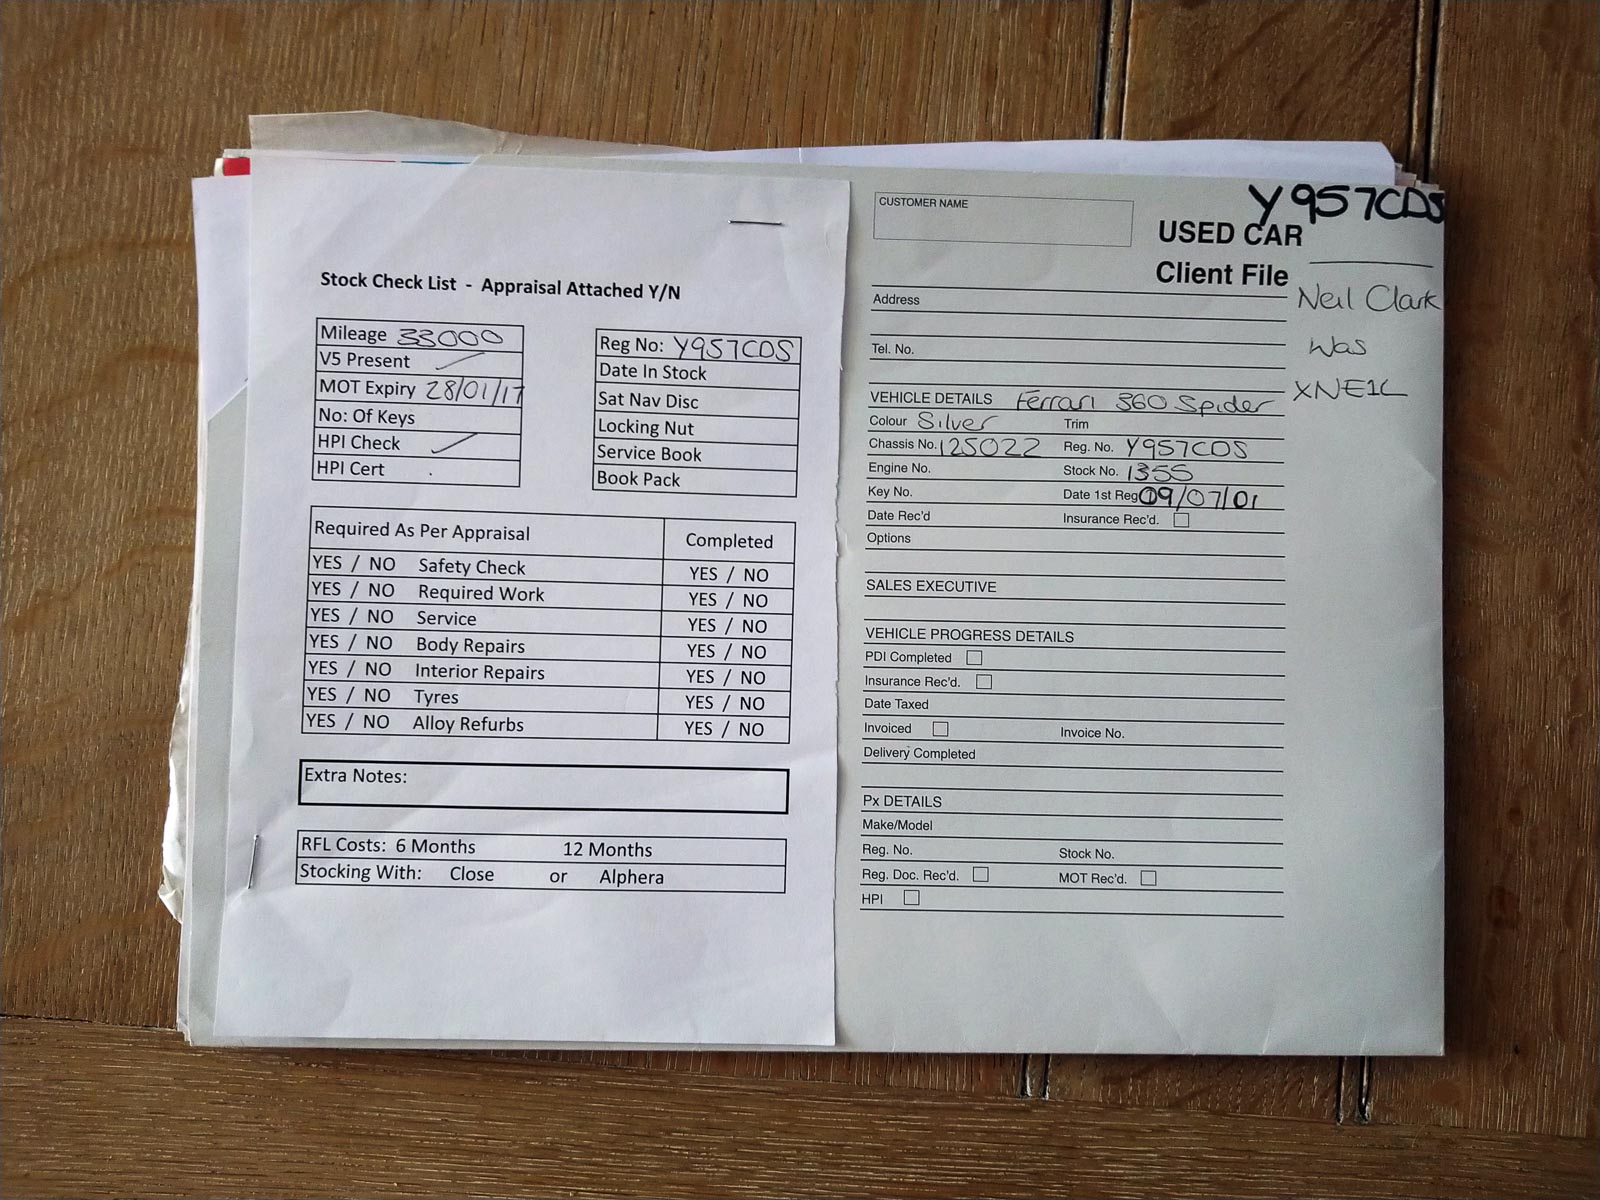 Stock Check List - Appraisal Attached Y/N
Mileage 33000
V5 Present
MOT Expiry 28/01/17
No: Of Keys
HPI Check
HPI Cert
Reg No: Y957CDS
Date In Stock
Sat Nav Disc
Locking Nut
Service Book
Book Pack
Required As Per Appraisal Completed
YES / NO Safety Check YES / NO
YES / NO Required Work YES / NO
YES / NO Service YES / NO
YES / NO Body Repairs YES / NO
YES / NO Interior Repairs YES / NO
YES / NO Tyres YES / NO
YES / NO Alloy Refurbs YES / NO
Extra Notes:
RFL Costs: 6 Months 12 Months
Stocking With: Close or Alphera
CUSTOMER NAME
Y957CDS
USED CAR
Client File
Neil Clark
Was
XNE1L
Address
Tel. No.
VEHICLE DETAILS Ferrari 360 Spider
Colour Silver Trim
Chassis No. 125022 Reg. No. Y957CDS
Engine No. Stock No. 1355
Key No. Date 1st Reg 09/07/01
Date Rec'd Insurance Rec'd.
Options
SALES EXECUTIVE
VEHICLE PROGRESS DETAILS
PDI Completed
Insurance Rec'd.
Date Taxed
Invoiced Invoice No.
Delivery Completed
Px DETAILS
Make/Model
Reg. No. Stock No.
Reg. Doc. Rec'd. MOT Rec'd.
HPI